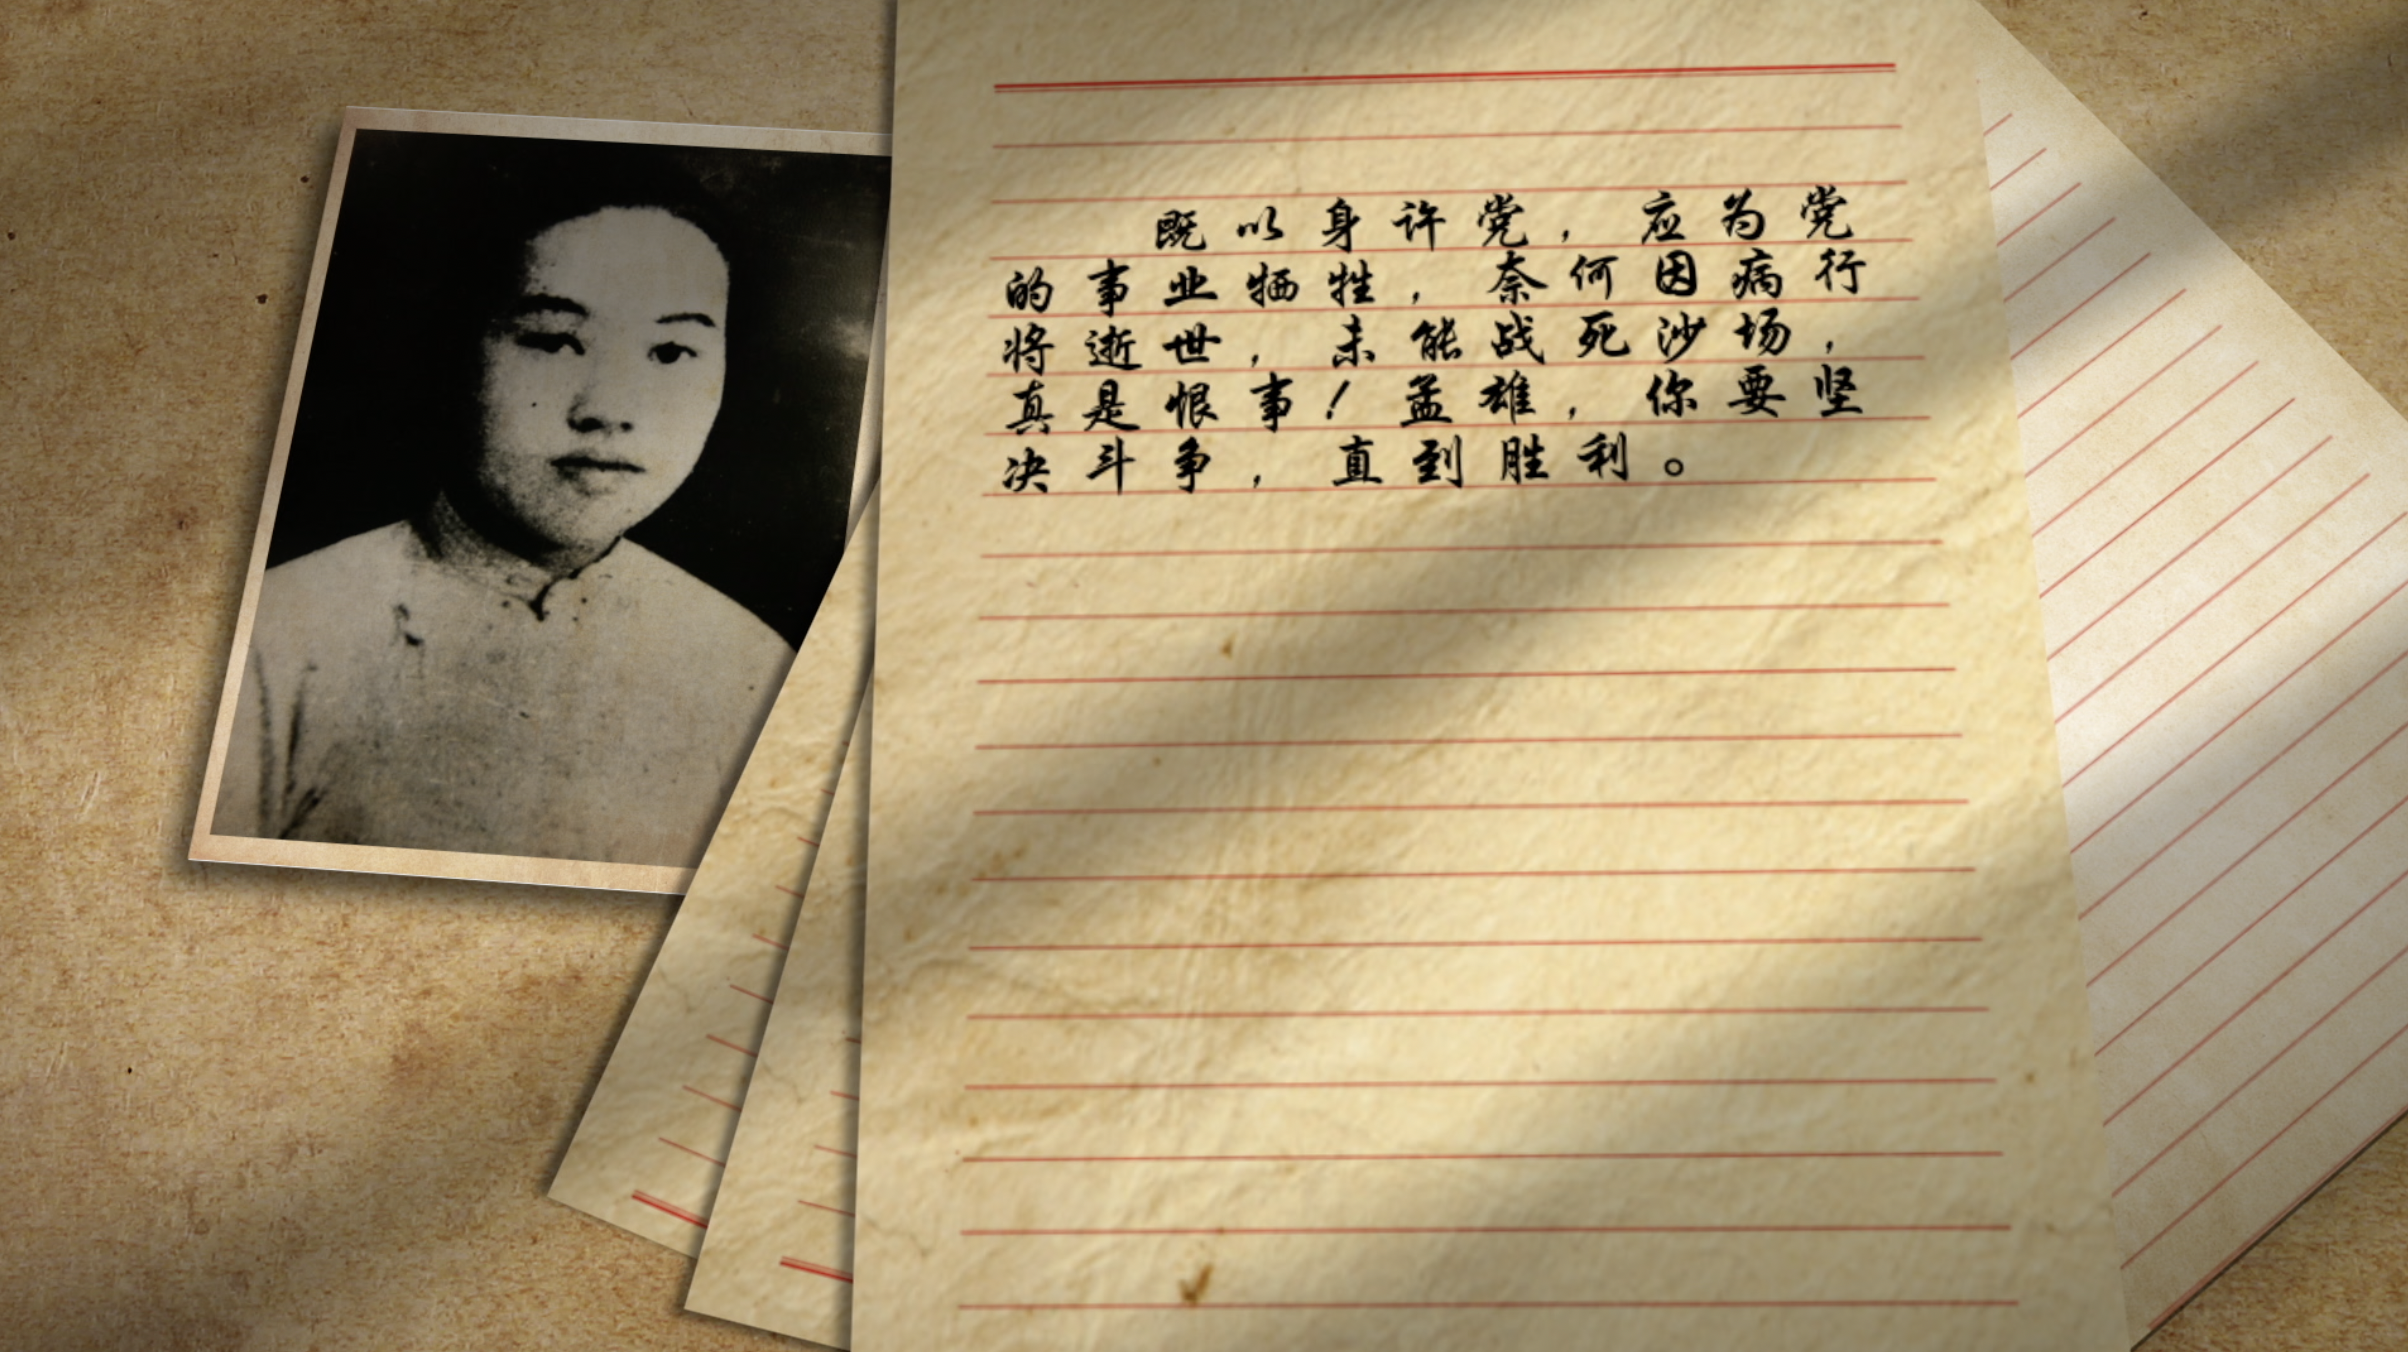 既以身许党，应为党
的事业牺牲，奈何因病行
将逝世，未能战死沙场，
真是恨事！孟雄，你要坚
决斗争，直到胜利。